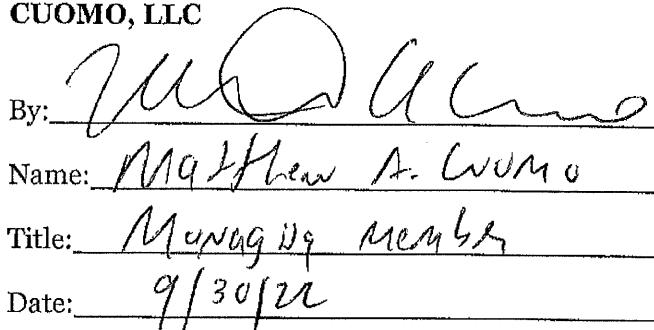 CUOMO, LLC
By:
Name: Matthew A. Cuomo
Title: Managing Member
Date: 9/30/22